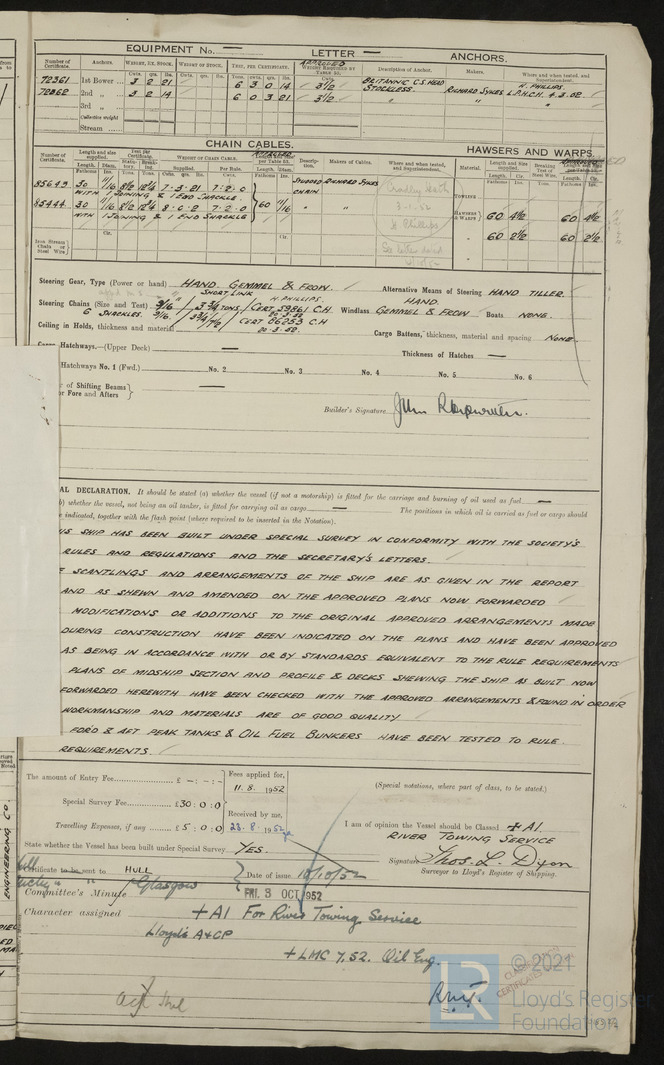 EQUIPMENT No. — LETTER — ANCHORS.
Number of Certificate. Anchors. Weight, Ex. Stock. Weight of Stock. Test, per Certificate. Weight Required by Table 53. Description of Anchor. Makers. Where and when tested, and Superintendent.
72361 1st Bower 3 2 21 6 3 0 14 3½ BRITANNIC C.S. HEAD STOCKLESS. RICHARD SYKES H. PHILLIPS. L.P.H.C.H. 4.3.52
72362 2nd „ 3 2 14 6 0 3 21 3½ „ „ „
3rd „
Collective weight
Stream
CHAIN CABLES. HAWSERS AND WARPS.
Number of Certificate. Length and size supplied. Test per Certificate. Weight of Chain Cable. Description. Makers of Cables. Where and when tested, and Superintendent. Material. Length and size supplied. Breaking Test of Steel Wire.
Fathoms Diam. Supplied. Per Rule. Fathoms
85649 30 11/16 8½ 12¾ 7-3-21 7-2-0 STUDDED CHAIN RICHARD SYKES Cradley Heath
WITH 1 JOINING & 1 END SHACKLE
3-1-52
85444 30 11/16 8½ 12¾ 8-0-2 7-2-0 60 11/16 „ „ H Phillips
WITH 1 JOINING & 1 END SHACKLE
Towline
Hawsers & Warps 60 4½ 60 4½
„ 60 2½ 60 2½
Iron Stream Chain or Steel Wire
Steering Gear, Type (Power or hand) HAND. GEMMEL & FROW. Alternative Means of Steering HAND TILLER.
Steering Chains (Size and Test) 9/16" SHORT LINK 3¾ TONS / CERT 59861 C.H H. PHILLIPS. 20-3-52 Windlass HAND. GEMMEL & FROW Boats NONE.
6 SHACKLES. 9/16. 3¾/7½ CERT 86253 C.H 20-3-52
Ceiling in Holds, thickness and material — Cargo Battens, thickness, material and spacing NONE.
Hatchways.—(Upper Deck) — Thickness of Hatches —
Hatchways No. 1 (Fwd.) No. 2 No. 3 No. 4 No. 5 No. 6
of Shifting Beams
or Fore and Afters —
Builder's Signature
AL DECLARATION. It should be stated (a) whether the vessel (if not a motorship) is fitted for the carriage and burning of oil used as fuel —
b) whether the vessel, not being an oil tanker, is fitted for carrying oil as cargo — The positions in which oil is carried as fuel or cargo should
indicated, together with the flash point (where required to be inserted in the Notation).
IS SHIP HAS BEEN BUILT UNDER SPECIAL SURVEY IN CONFORMITY WITH THE SOCIETY'S
RULES AND REGULATIONS AND THE SECRETARY'S LETTERS.
E SCANTLINGS AND ARRANGEMENTS OF THE SHIP ARE AS GIVEN IN THE REPORT
AND AS SHEWN AND AMENDED ON THE APPROVED PLANS NOW FORWARDED
MODIFICATIONS OR ADDITIONS TO THE ORIGINAL APPROVED ARRANGEMENTS MADE
DURING CONSTRUCTION HAVE BEEN INDICATED ON THE PLANS AND HAVE BEEN APPROVED
AS BEING IN ACCORDANCE WITH OR BY STANDARDS EQUIVALENT TO THE RULE REQUIREMENTS
PLANS OF MIDSHIP SECTION AND PROFILE & DECKS SHEWING THE SHIP AS BUILT NOW
FORWARDED HEREWITH HAVE BEEN CHECKED WITH THE APPROVED ARRANGEMENTS & FOUND IN ORDER
WORKMANSHIP AND MATERIALS ARE OF GOOD QUALITY
FORD & AFT PEAK TANKS & OIL FUEL BUNKERS HAVE BEEN TESTED TO RULE
REQUIREMENTS.
The amount of Entry Fee £ -:-:- Fees applied for, 11. 8. 1952
(Special notations, where part of class, to be stated.)
Special Survey Fee £30:0:0
Received by me,
Travelling Expenses, if any £5:0:0 23. 8. 1952
I am of opinion the Vessel should be Classed +A1.
RIVER TOWING SERVICE
State whether the Vessel has been built under Special Survey YES.
Signature Thos. L. Dixon
Surveyor to Lloyd's Register of Shipping.
Certificate to be sent to HULL Date of issue 10/10/52
Glasgow
Committee's Minute FRI. 3 OCT 1952
Character assigned +A1 For River Towing Service
Lloyd's A&CP
+LMC 7.52. Oil Eng.
ENGINEERING CO.
LR © 2021
Lloyd's Register
Foundation